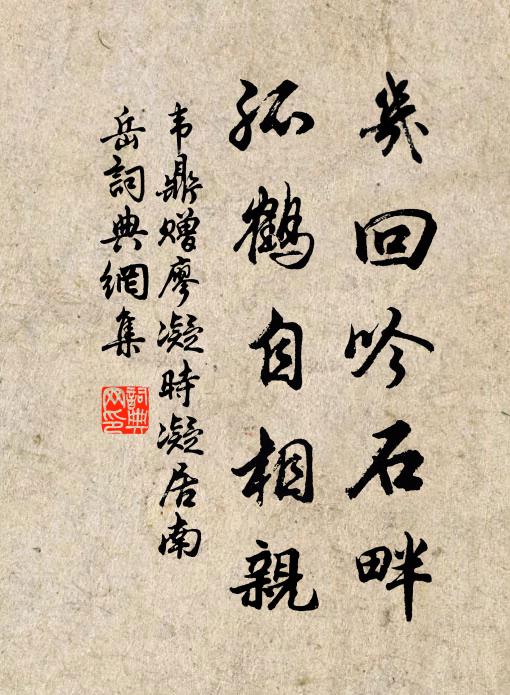 幾回吟石畔
孤鶴自相親
韦鼎赠廖凝時凝居南
岳詞典網集
詞典网印